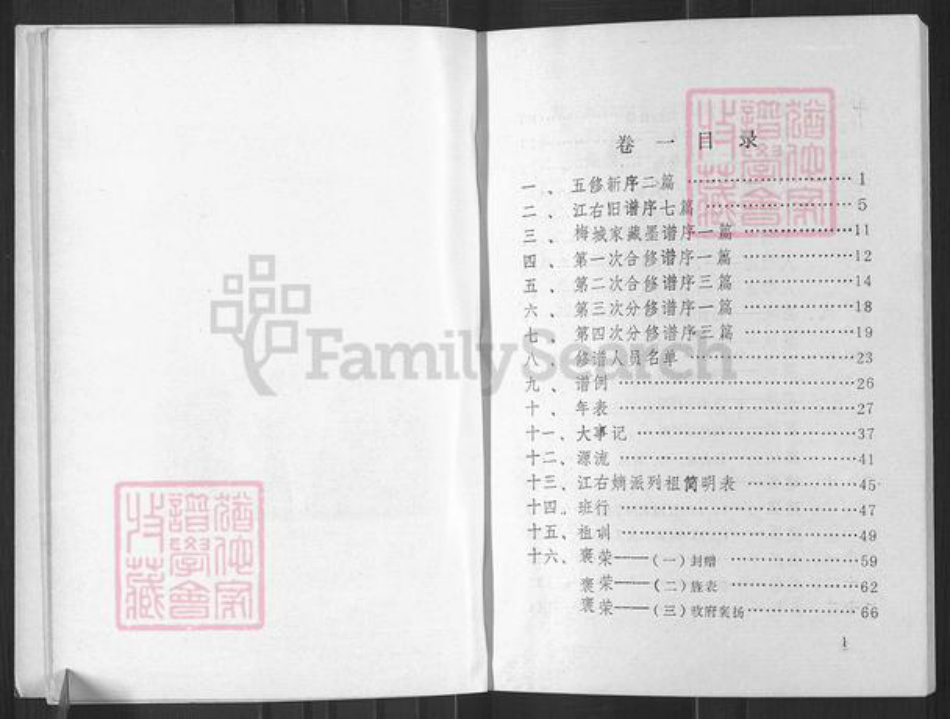 卷一目录
一、五修新序二篇 ……………………1
二、江右旧谱序七篇 ……………………5
三、梅城家藏墨谱序一篇 ………………11
四、第一次合修谱序一篇 ………………12
五、第二次合修谱序三篇 ………………14
六、第三次分修谱序一篇 ………………18
七、第四次分修谱序三篇 ………………19
八、修谱人员名单 ………………………23
九、谱例 …………………………………26
十、年表 …………………………………27
十一、大事记 ……………………………37
十二、源流 ………………………………41
十三、江右嫡派列祖简明表 ……………45
十四、班行 ………………………………47
十五、祖训 ………………………………49
十六、褒荣——(一)封赠 ………………59
褒荣——(二)旌表 ………………62
褒荣——(三)政府褒扬……………66
1
FamilySearch